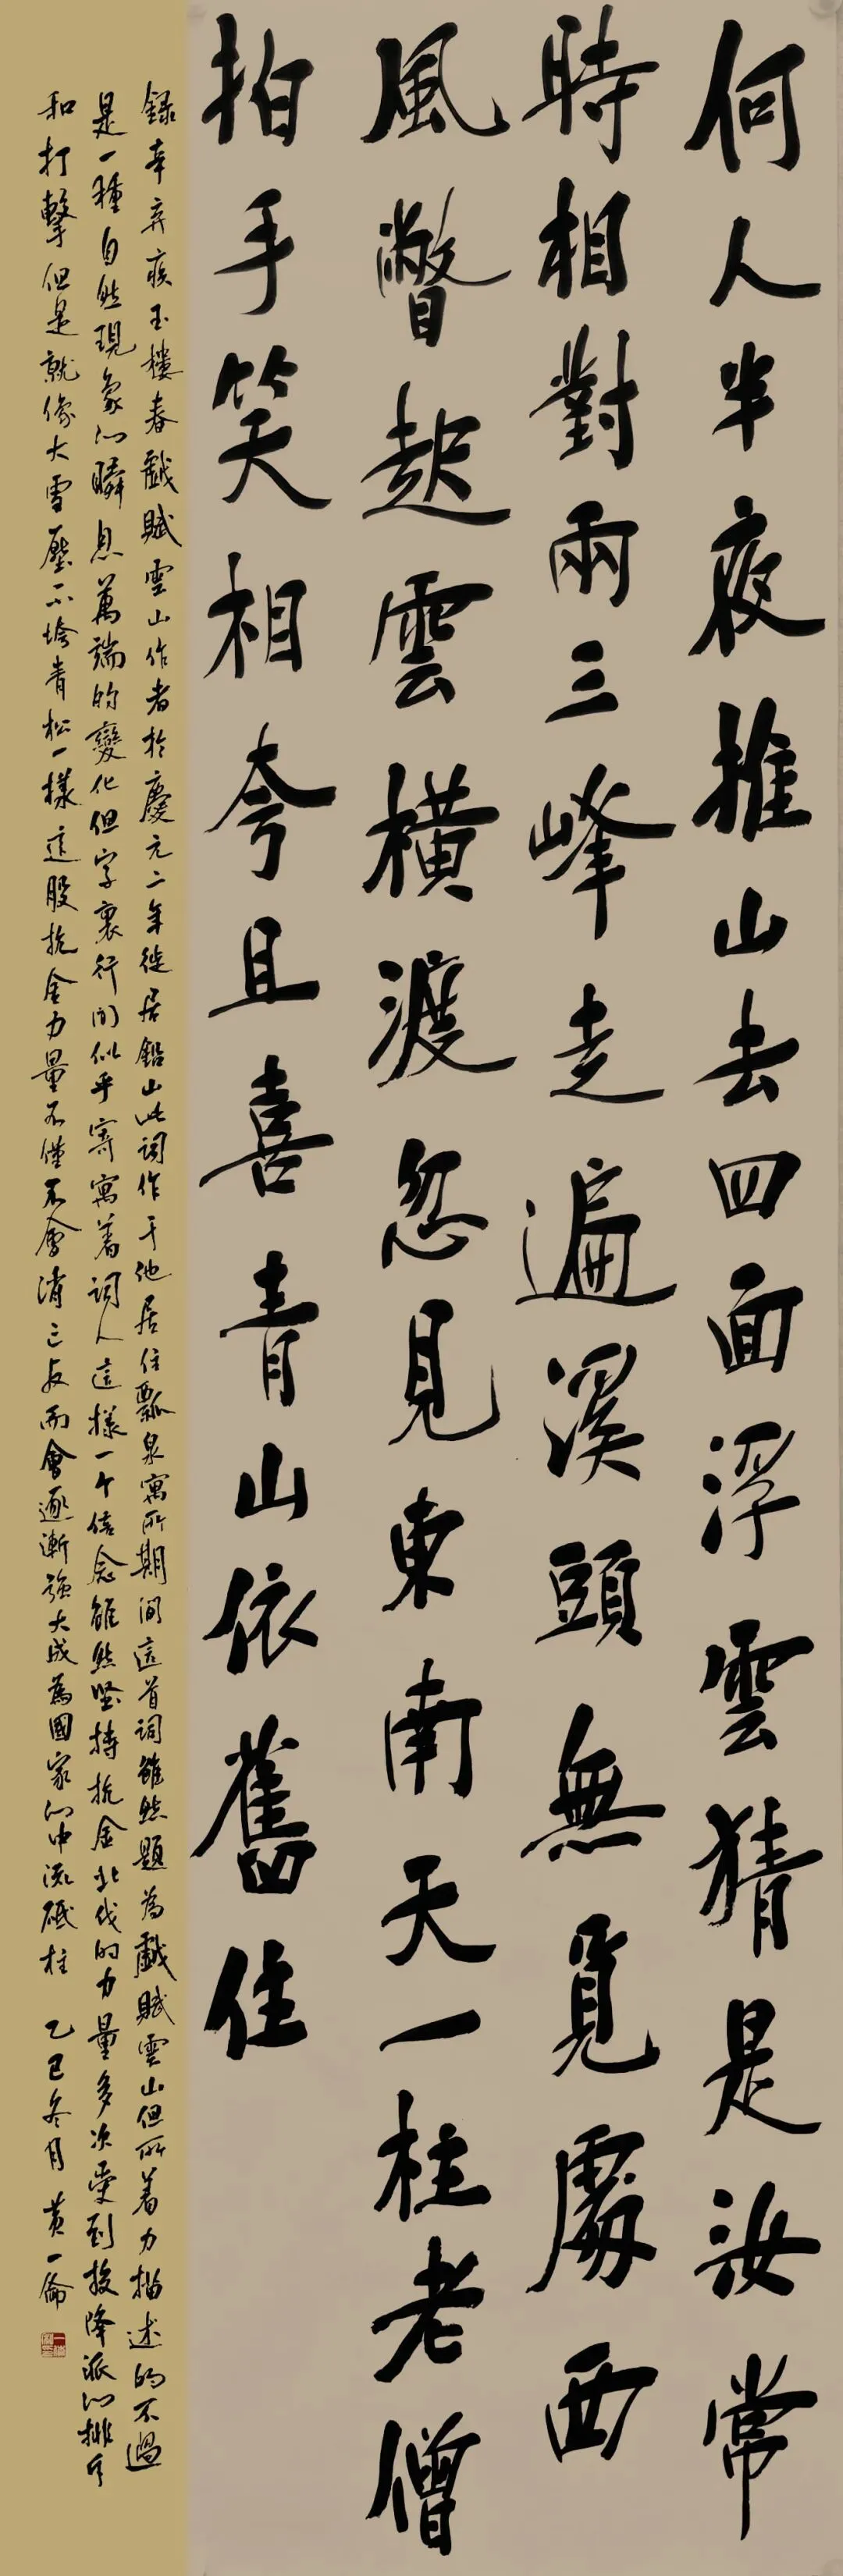 何人半夜推山去四面浮雲猜是汝常
時相對兩三峰走遍溪頭無覓處西
風瞥起雲橫渡忽見東南天一柱老僧
拍手笑相夸且喜青山依舊住
錄辛弃疾玉樓春戲賦雲山作者於慶元二年徙居鉛山此詞作于他居住瓢泉寓所期间這首詞雖然題為戲賦雲山但所着力描述的不過
是一種自然現象的瞬息萬端的變化但字裏行间似乎寄寓着詞人這樣一个信念雖然坚持抗金北伐的力量多次受到投降派的排斥
和打擊但是就像大雪壓不垮青松一樣這股抗金力量不僅不會消亡反而會逐漸強大成為國家的中流砥柱 乙巳冬月 黄一倫